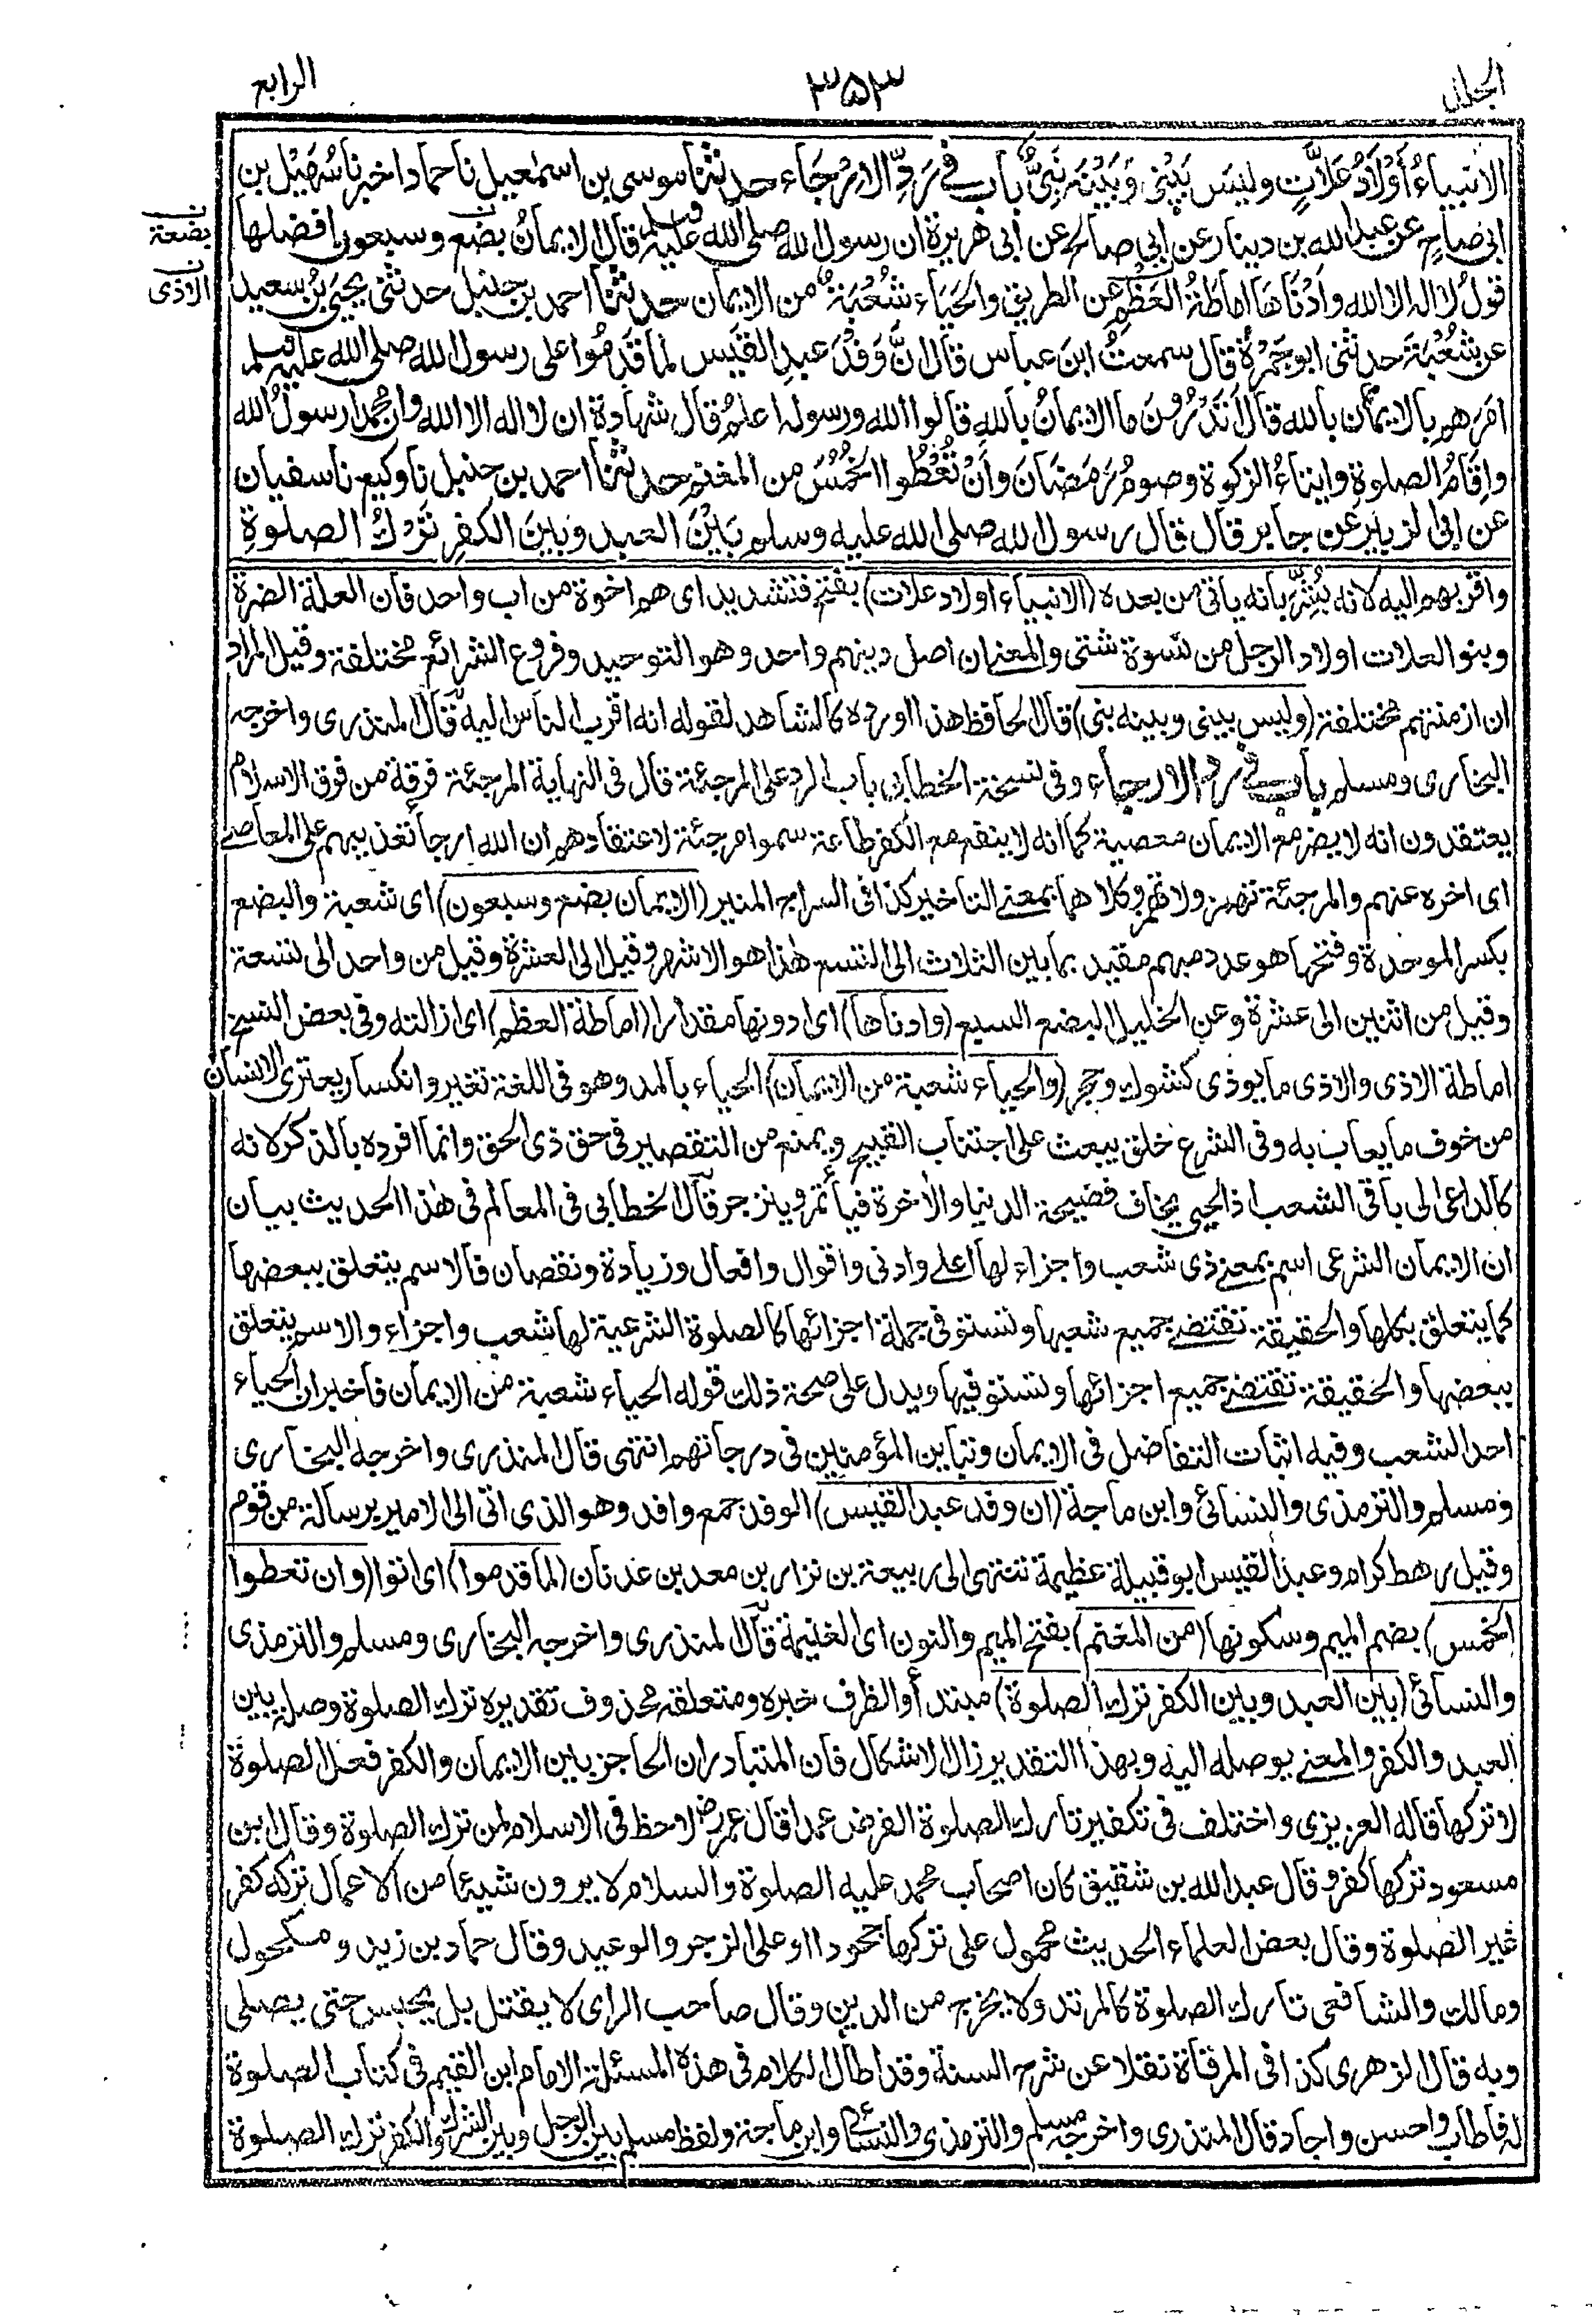 الجلد
٣٥٣
الرابع
الانبياءُ أَوْلَادُ عَلَّاتٍ وليسَ بَيْنِى وَبَيْنَهُ نَبِىٌّ باب فى رَدِّ الارْجَاء حدثنا موسى بن اسمٰعيل نا حماد اخبرنا سُهَيْل بن
ابى صالح عن عبد الله بن دينار عن ابى صالح عن ابى هريرة ان رسول الله صلى الله عليه وسلم قال الايمانُ بضع وسبعون افضلها
بضعة
قولُ لا اله الا الله وَاَدْنَاهَا اماطةُ العَظْمِ عن الطريق والحَيَاء شُعْبَةٌ من الايمان حدثنا احمد بن حنبل حدثنى يحيى بن سعيد
الاذى
عن شُعْبَةَ حدثنى ابو جَمْرَةَ قال سمعتُ ابنَ عباس قال انَّ وَفْدَ عبدِ القَيْس لما قَدِمُوا على رسول الله صلى الله عليه وسلم
امَرَهم بالايمان بالله قال اَتَدْرُوْنَ ما الايمانُ بالله قالوا الله ورسوله اعلم قال شهادة ان لا اله الا الله وان محمدا رسولُ الله
واِقَامُ الصلوةِ وايتاءُ الزكوة وصومُ رَمَضَانَ وَأَنْ تُعْطُوا الخُمُسَ من المغنم حدثنا احمد بن حنبل نا وكيع نا سفيان
عن ابى الزبير عن جابر قال قال رسول الله صلى الله عليه وسلم بَيْنَ العبد وبينَ الكفرِ تَرْكُ الصلوةِ
واقربهم اليه لانه بُشِّرَ بانه ياتى من بعده (الانبياء اولاد علات) بفتح فتشديد اى هم اخوة من اب واحد فان العلة الضرة
وبنو العلات اولاد الرجل من نسوة شتى والمعنى ان اصل دينهم واحد وهو التوحيد وفروع الشرائع مختلفة وقيل المراد
ان ازمنتهم مختلفة (وليس بينى وبينه نبى) قال الحافظ هذا اورده كالشاهد لقوله انه اقرب الناس اليه قال المنذرى واخرجه
البخارى ومسلم باب فى رد الارجاء وفى نسخة الخطابى باب الرد على المرجئة قال فى النهاية المرجئة فرقة من فرق الاسلام
يعتقدون انه لا يضر مع الايمان معصية كما انه لا ينفع مع الكفر طاعة سموا مرجئة لاعتقادهم ان الله ارجأ تعذيبهم على المعاصى
اى اخره عنهم والمرجئة تهمز ولا تهمز وكلاهما بمعنى التاخير كذا فى السراج المنير (الايمان بضع وسبعون) اى شعبة والبضع
بكسر الموحدة وفتحها هو عدد مبهم مقيد بما بين الثلاث الى التسع هذا هو الاشهر وقيل الى العشرة وقيل من واحد الى تسعة
وقيل من اثنين الى عشرة وعن الخليل البضع السبع (وادناها) اى ادونها مقدارا (اماطة العظم) اى ازالته وفى بعض النسخ
اماطة الاذى والاذى ما يوذى كشوك وحجر (والحياء شعبة من الايمان) الحياء بالمد وهو فى اللغة تغير وانكسار يعترى الانسان
من خوف ما يعاب به وفى الشرع خلق يبعث على اجتناب القبيح ويمنع من التقصير فى حق ذى الحق وانما افرده بالذكر لانه
كالداعى الى باقى الشعب اذ الحيى يخاف فضيحة الدنيا والاخرة فيأتمر وينزجر قال الخطابى فى المعالم فى هذا الحديث بيان
ان الايمان الشرعى اسم بمعنى ذى شعب واجزاء لها اعلى وادنى واقوال وافعال وزيادة ونقصان فالاسم يتعلق ببعضها
كما يتعلق بكلها والحقيقة تقتضى جميع شعبها وتستوفى جملة اجزائها كالصلوة الشرعية لها شعب واجزاء والاسم يتعلق
ببعضها والحقيقة تقتضى جميع اجزائها وتستوفيها ويدل على صحة ذلك قوله الحياء شعبة من الايمان فاخبر ان الحياء
احد الشعب وفيه اثبات التفاضل فى الايمان وتباين المؤمنين فى درجاتهم انتهى قال المنذرى واخرجه البخارى
ومسلم والترمذى والنسائى وابن ماجة (ان وفد عبد القيس) الوفد جمع وافد وهو الذى اتى الى الامير برسالة من قوم
وقيل رهط كرام وعبد القيس ابو قبيلة عظيمة تنتهى الى ربيعة بن نزار بن معد بن عدنان (لما قدموا) اى اتوا (وان تعطوا
الخمس) بضم الميم وسكونها (من المغنم) بفتح الميم والنون اى الغنيمة قال المنذرى واخرجه البخارى ومسلم والترمذى
والنسائى (بين العبد وبين الكفر ترك الصلوة) مبتدأ والظرف خبره ومتعلقه محذوف تقديره ترك الصلوة وصلة بين
العبد والكفر والمعنى يوصله اليه وبهذا التقدير زال الاشكال فان المتبادر ان الحاجز بين الايمان والكفر فعل الصلوة
لا تركها قاله العزيزى واختلف فى تكفير تارك الصلوة الفرض عمدا قال عمر رض لاحظ فى الاسلام لمن ترك الصلوة وقال ابن
مسعود تركها كفر وقال عبد الله بن شقيق كان اصحاب محمد عليه الصلوة والسلام لا يرون شيئا من الاعمال تركه كفر
غير الصلوة وقال بعض العلماء الحديث محمول على تركها جحودا او على الزجر والوعيد وقال حماد بن زيد ومكحول
ومالك والشافعى تارك الصلوة كالمرتد ولا يخرج من الدين وقال صاحب الراى لا يقتل بل يحبس حتى يصلى
وبه قال الزهرى كذا فى المرقاة نقلا عن شرح السنة وقد اطال الكلام فى هذه المسئلة الامام ابن القيم فى كتاب الصلوة
له فاطاب واحسن واجاد قال المنذرى واخرجه مسلم والترمذى والنسائى وابن ماجة ولفظ مسلم بين الرجل وبين الشرك والكفر ترك الصلوة